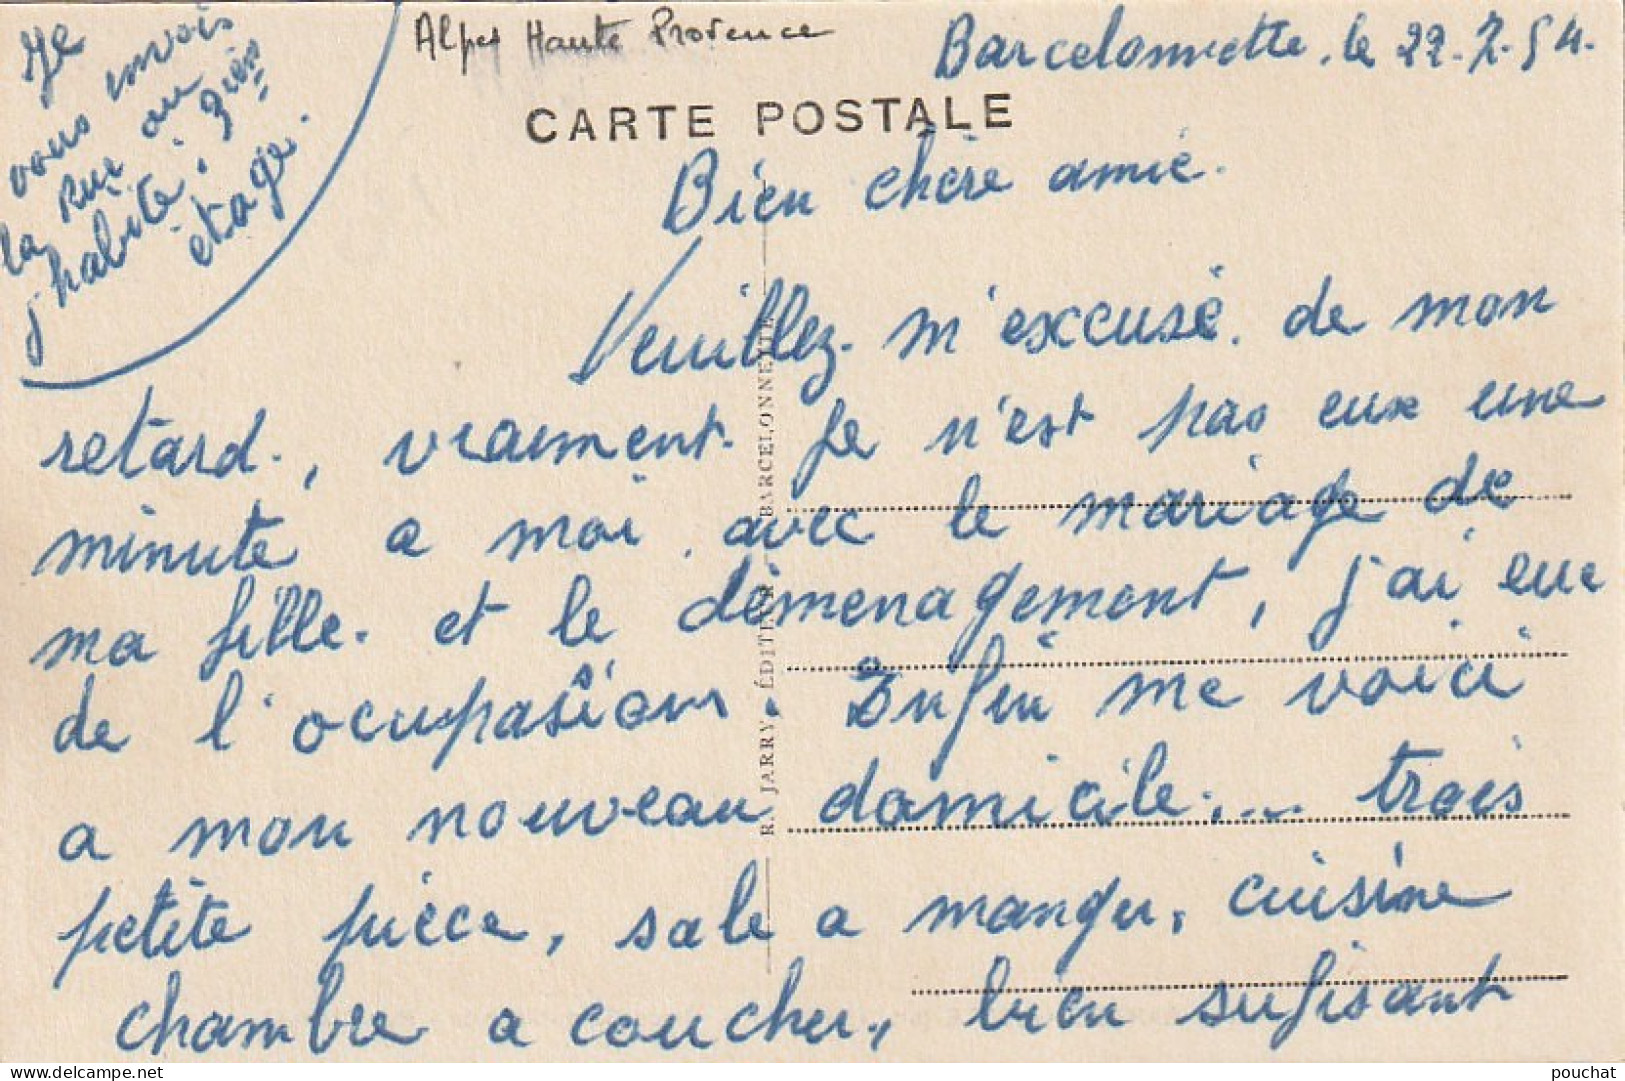 Alpes Haute Provence
Barcelonnette, le 22.7.54.
CARTE POSTALE
Je
vous envois
la rue ou
j'habite, 3ième
etage.
Bien chère amie.
Veuillez m'excusé de mon
retard, vraiment je n'est pas eux une
minute a moi, avec le mariage de
ma fille et le déménagement, j'ai eue
de l'ocupasion. Enfin me voici
a mon nouveau domicile,... trois
petite pièce, sale a manger, cuisine
chambre a coucher, bien sufisant
R. JARRY, ÉDITEUR BARCELONNETTE
pouchat